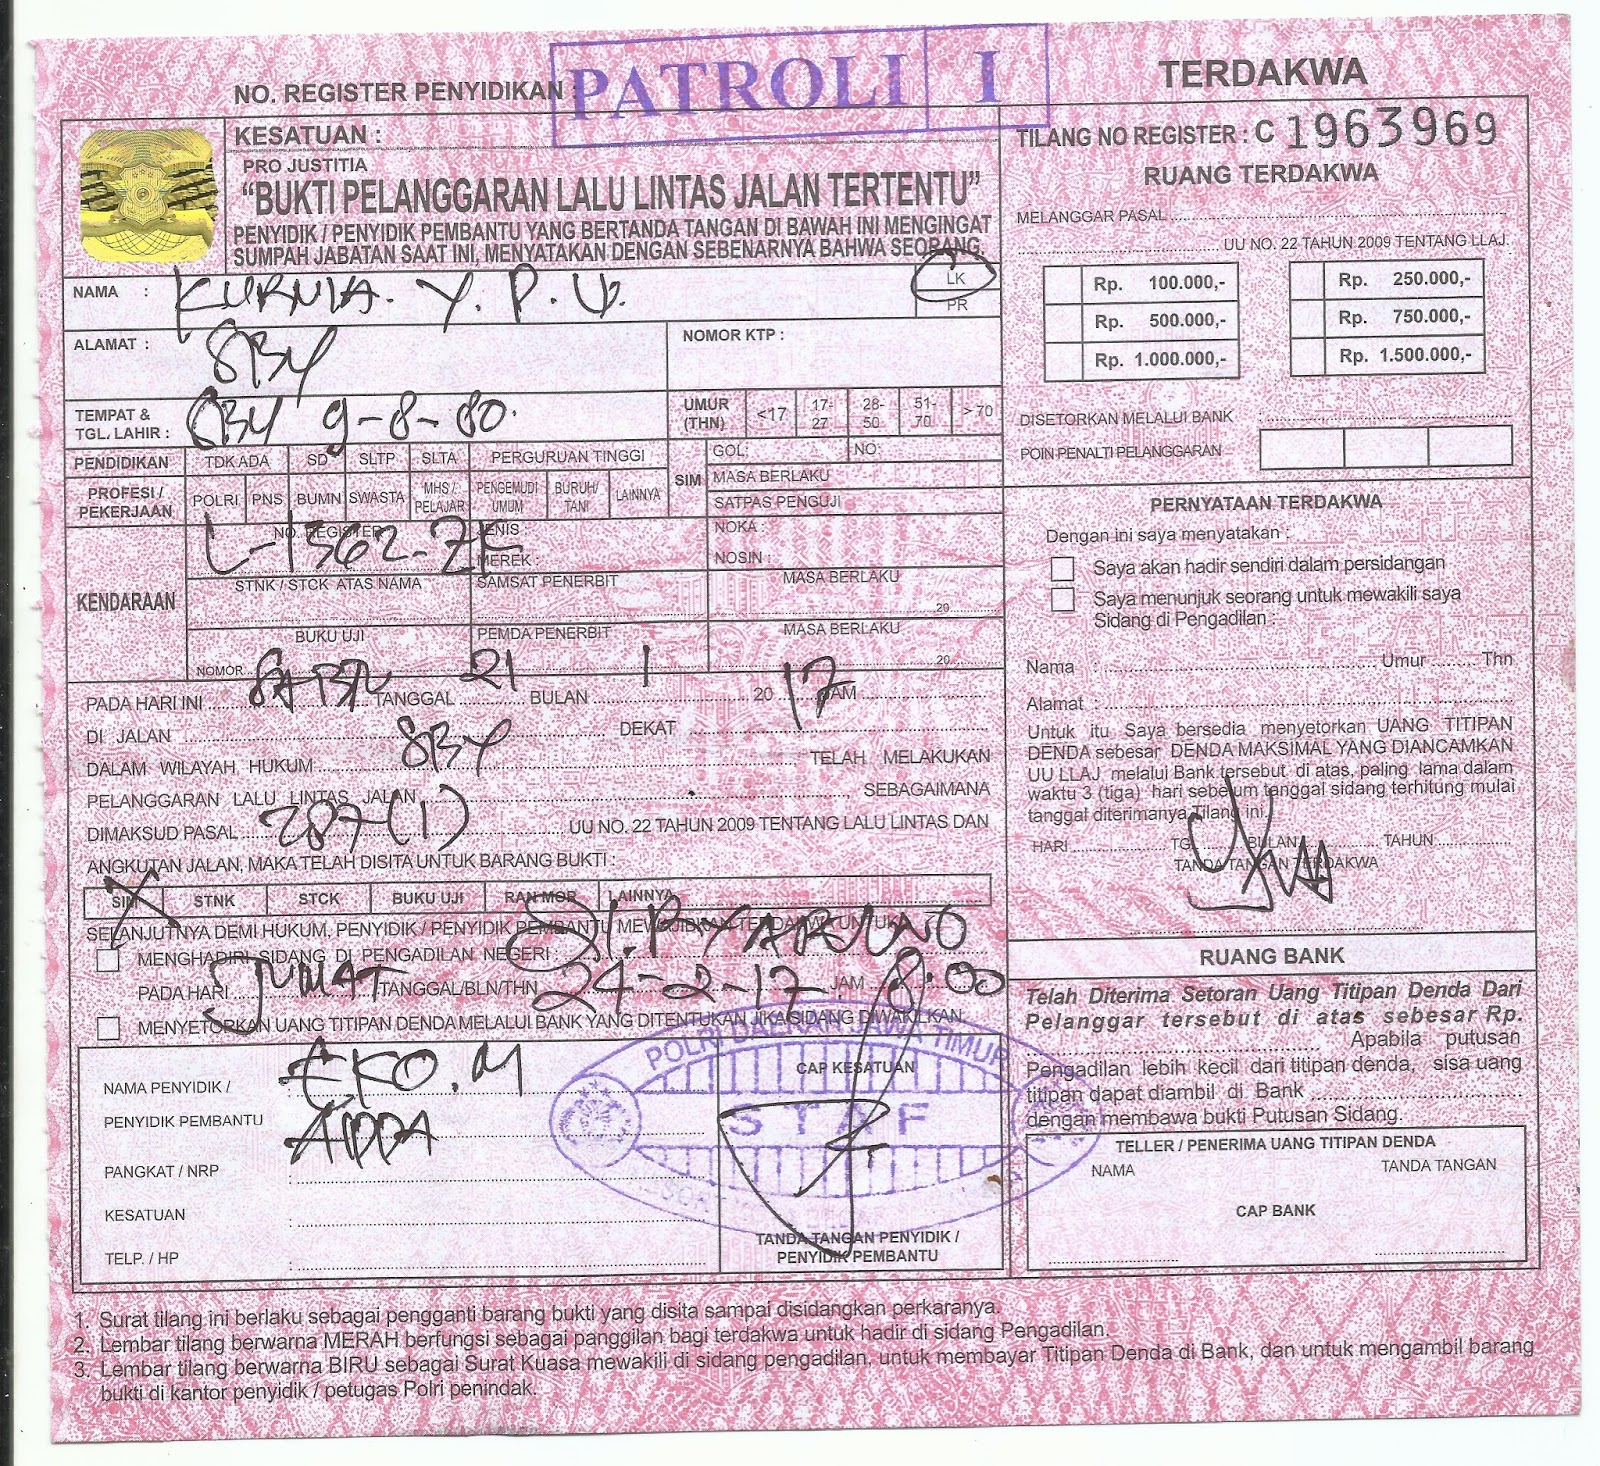 PATROLI I
NO. REGISTER PENYIDIKAN :
TERDAKWA
KESATUAN :
PRO JUSTITIA
"BUKTI PELANGGARAN LALU LINTAS JALAN TERTENTU"
PENYIDIK / PENYIDIK PEMBANTU YANG BERTANDA TANGAN DI BAWAH INI MENGINGAT
SUMPAH JABATAN SAAT INI, MENYATAKAN DENGAN SEBENARNYA BAHWA SEORANG
NAMA : KURNIA. Y. P. U. LK
PR
ALAMAT : SBY
NOMOR KTP :
TEMPAT &
TGL. LAHIR : SBY 9-8-80.
UMUR (THN) <17 17-27 28-50 51-70 >70
PENDIDIKAN TDK ADA SD SLTP SLTA PERGURUAN TINGGI
PROFESI / PEKERJAAN POLRI PNS BUMN SWASTA MHS / PELAJAR PENGEMUDI UMUM BURUH/ TANI LAINNYA
SIM GOL: NO:
MASA BERLAKU
SATPAS PENGUJI
KENDARAAN
NO. REGISTER L-1362-ZE
JENIS
MEREK :
NOKA :
NOSIN :
STNK / STCK ATAS NAMA SAMSAT PENERBIT MASA BERLAKU
20
BUKU UJI PEMDA PENERBIT MASA BERLAKU
NOMOR 20
PADA HARI INI SABTU TANGGAL 21 BULAN 1 20 17 JAM
DI JALAN DEKAT
DALAM WILAYAH HUKUM SBY TELAH MELAKUKAN
PELANGGARAN LALU LINTAS JALAN SEBAGAIMANA
DIMAKSUD PASAL 287 (1) UU NO. 22 TAHUN 2009 TENTANG LALU LINTAS DAN
ANGKUTAN JALAN, MAKA TELAH DISITA UNTUK BARANG BUKTI :
SIM STNK STCK BUKU UJI RAN MOR LAINNYA
SELANJUTNYA DEMI HUKUM, PENYIDIK / PENYIDIK PEMBANTU MEWAJIBKAN TERDAKWA UNTUK
MENGHADIRI SIDANG DI PENGADILAN NEGERI :
PADA HARI JUMAT TANGGAL/BLN/THN 24-2-17 JAM 8.00
MENYETORKAN UANG TITIPAN DENDA MELALUI BANK YANG DITENTUKAN JIKA SIDANG DIWAKILKAN
NAMA PENYIDIK / EKO. M
PENYIDIK PEMBANTU AIPDA
PANGKAT / NRP :
KESATUAN :
TELP. / HP :
CAP KESATUAN
POLRI DAERAH JAWA TIMUR
STAF
TANDA TANGAN PENYIDIK /
PENYIDIK PEMBANTU
TILANG NO REGISTER : C 1963969
RUANG TERDAKWA
MELANGGAR PASAL
UU NO. 22 TAHUN 2009 TENTANG LLAJ.
Rp. 100.000,- Rp. 250.000,-
Rp. 500.000,- Rp. 750.000,-
Rp. 1.000.000,- Rp. 1.500.000,-
DISETORKAN MELALUI BANK :
POIN PENALTI PELANGGARAN
PERNYATAAN TERDAKWA
Dengan ini saya menyatakan :
Saya akan hadir sendiri dalam persidangan
Saya menunjuk seorang untuk mewakili saya
Sidang di Pengadilan :
Nama : Umur Thn
Alamat :
Untuk itu Saya bersedia menyetorkan UANG TITIPAN
DENDA sebesar DENDA MAKSIMAL YANG DIANCAMKAN
UU LLAJ melalui Bank tersebut di atas, paling lama dalam
waktu 3 (tiga) hari sebelum tanggal sidang terhitung mulai
tanggal diterimanya Tilang ini.
HARI TGL BULAN TAHUN
TANDA TANGAN TERDAKWA
RUANG BANK
Telah Diterima Setoran Uang Titipan Denda Dari
Pelanggar tersebut di atas sebesar Rp.
Apabila putusan
Pengadilan lebih kecil dari titipan denda, sisa uang
titipan dapat diambil di Bank
dengan membawa bukti Putusan Sidang.
TELLER / PENERIMA UANG TITIPAN DENDA
NAMA TANDA TANGAN
CAP BANK
1. Surat tilang ini berlaku sebagai pengganti barang bukti yang disita sampai disidangkan perkaranya.
2. Lembar tilang berwarna MERAH berfungsi sebagai panggilan bagi terdakwa untuk hadir di sidang Pengadilan.
3. Lembar tilang berwarna BIRU sebagai Surat Kuasa mewakili di sidang pengadilan, untuk membayar Titipan Denda di Bank, dan untuk mengambil barang
bukti di kantor penyidik / petugas Polri penindak.